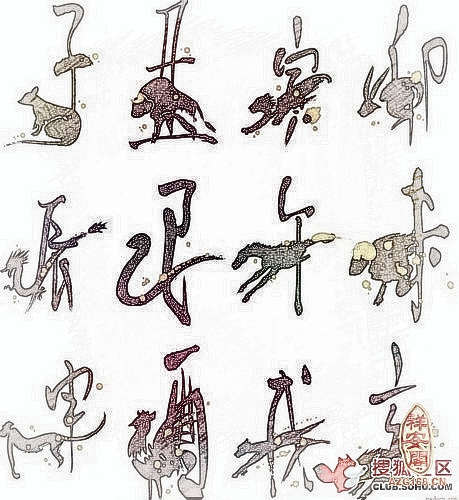 子 丑 寅 卯
辰 巳 午 未
申 酉 戌 亥
祥安阁
搜狐社区
CLUB.SOHU.COM